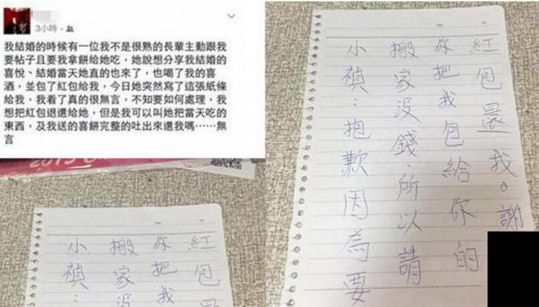 3小時
我結婚的時候有一位我不是很熟的長輩主動跟我
要帖子且要我拿餅給她吃，她說想分享我結婚的
喜悅、結婚當天她直的也來了，也喝了我的喜
酒，並包了紅包給我，今日她突然寫了這張紙條
給我，我看了真的很無言，不知要如何處理，我
想把紅包退還給她，但是我可以叫她把當天吃的
東西，及我送的喜餅完整的吐出來還我嗎⋯⋯無
言
小禎:抱歉因為要
搬家沒錢,所以請
你把我包給你的
紅包還我。謝
小禎:
搬家沒
你把我
紅包還